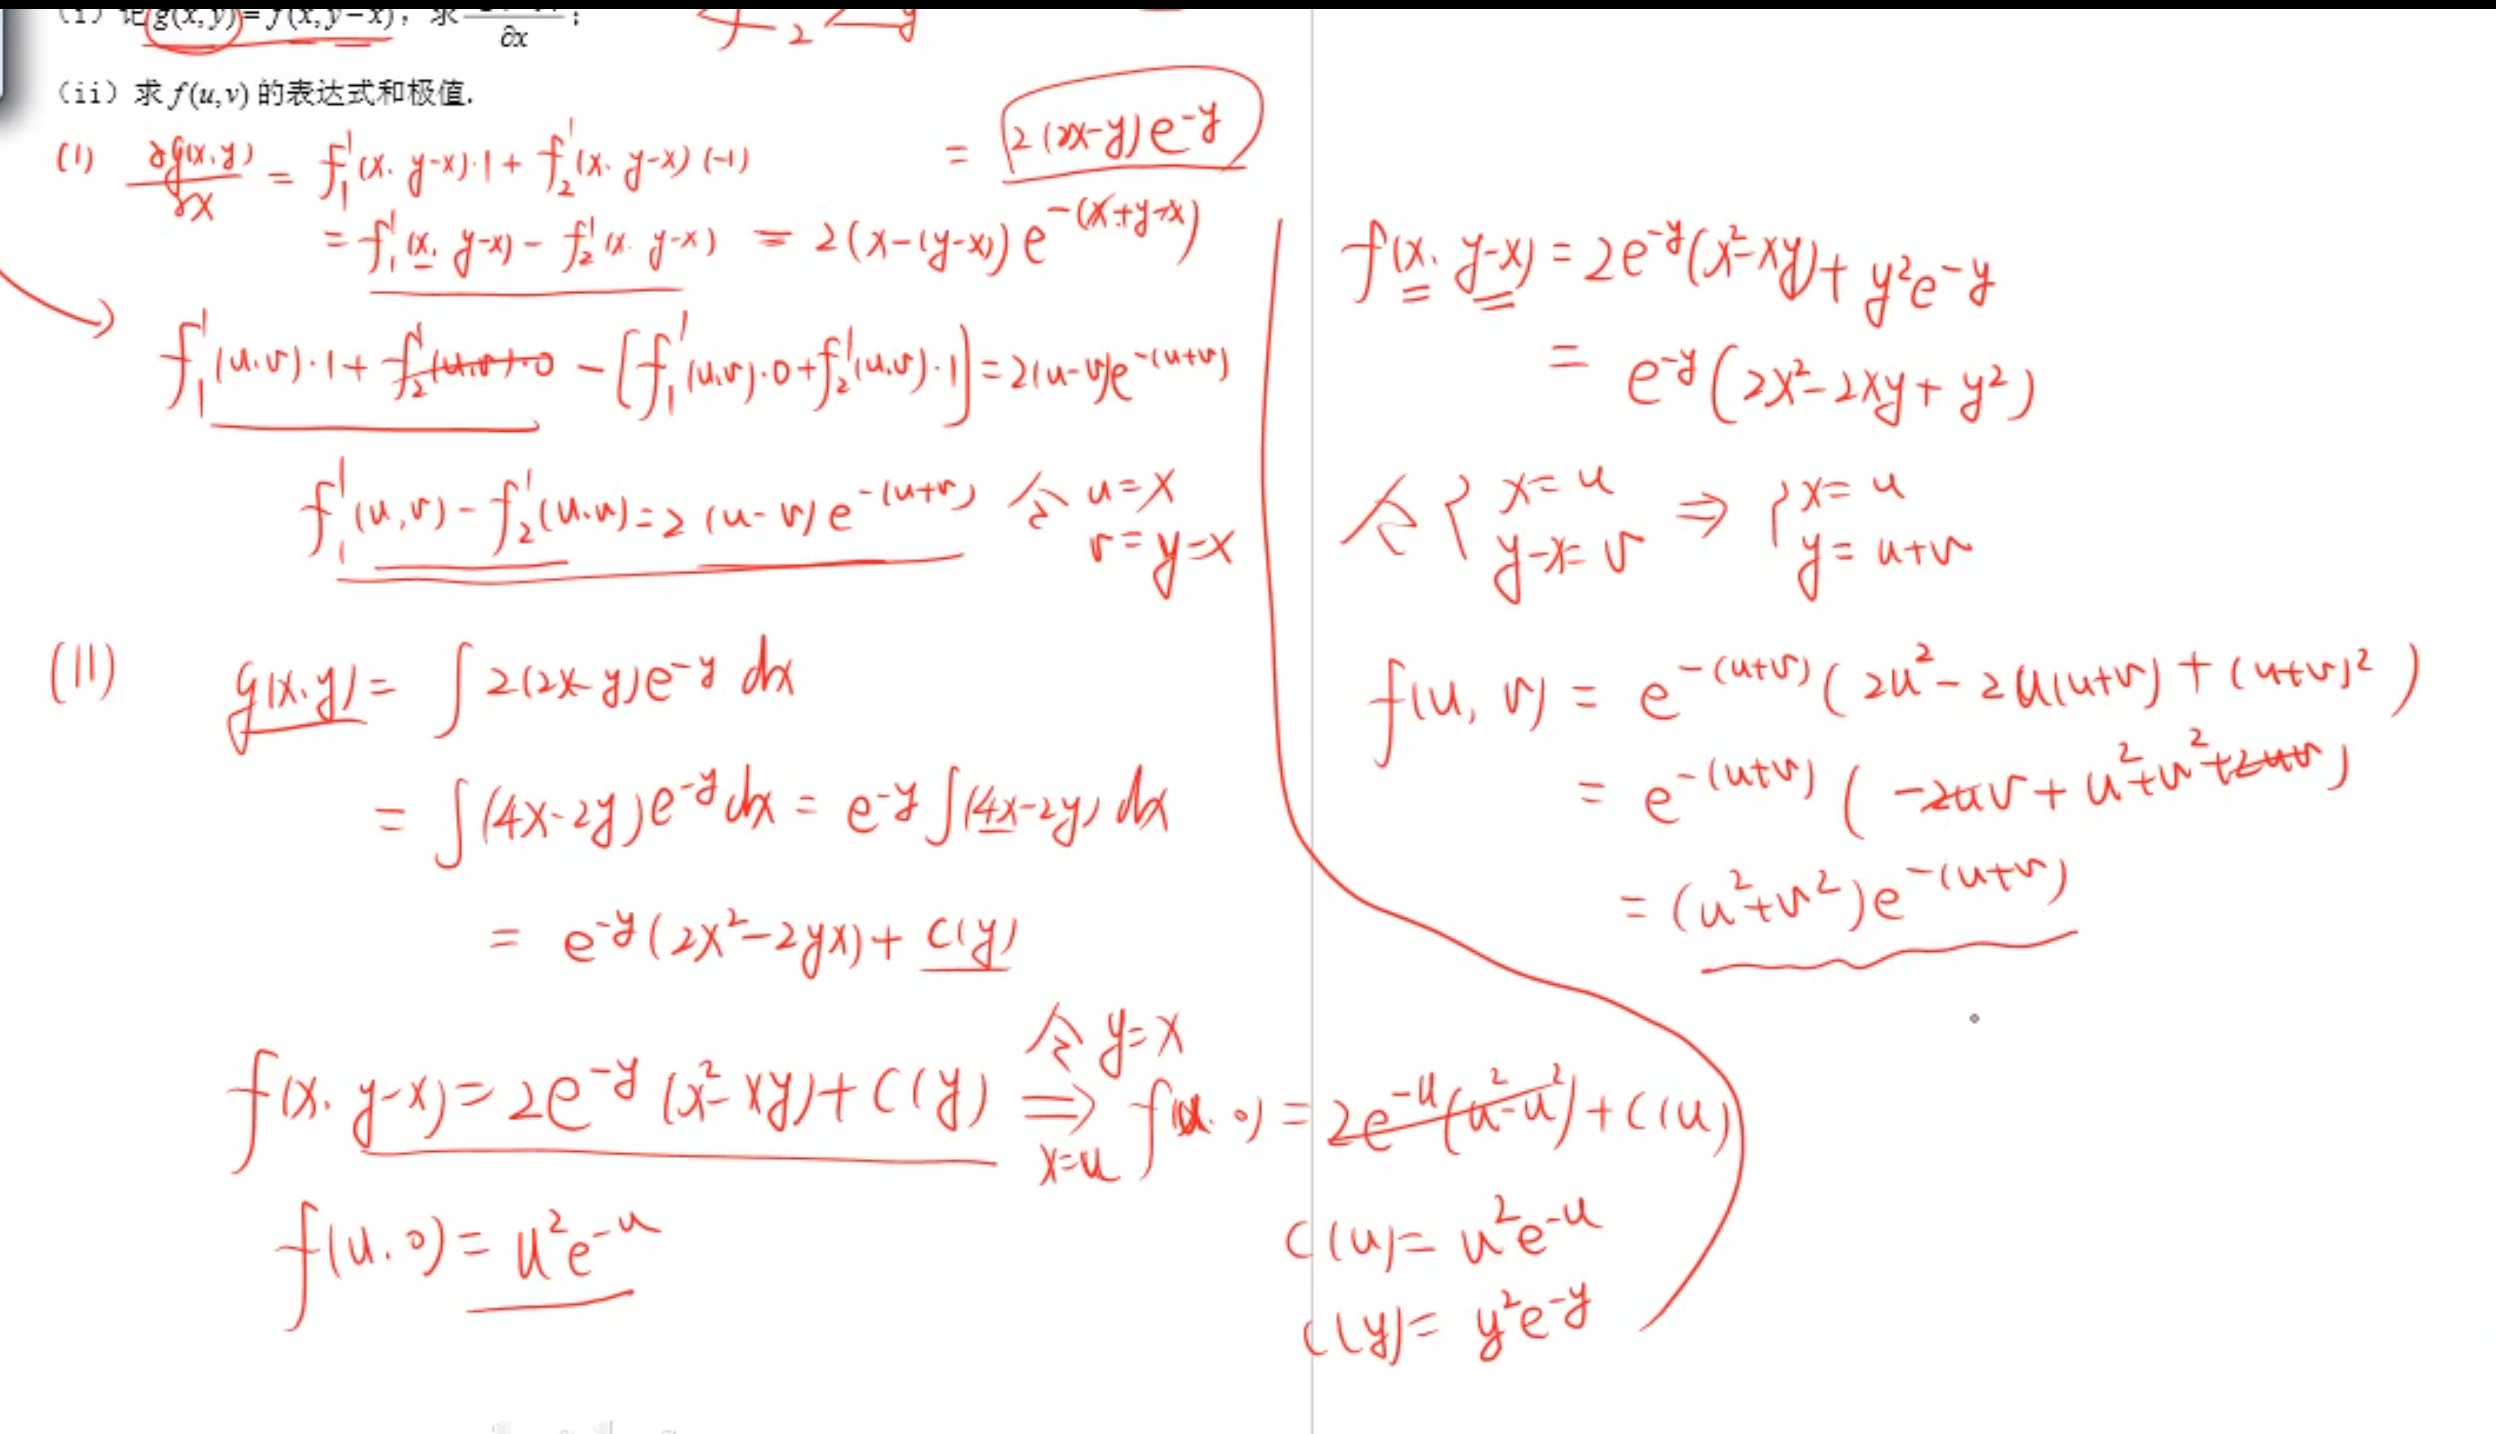 (i) 记 g(x,y)=f(x,y−x), 求 ∂x ;
(ii) 求 f(u,v) 的表达式和极值.
(1) ∂g(x,y)/∂x = f₁'(x, y-x)·1 + f₂'(x, y-x)(-1)
= f₁'(x, y-x) - f₂'(x, y-x) = 2(x-(y-x))e^{-(x+y-x)}
= 2(2x-y)e^{-y}
f₁'(u,v)·1 + f₂'(u,v)·0 - [f₁'(u,v)·0 + f₂'(u,v)·1] = 2(u-v)e^{-(u+v)}
f₁'(u,v) - f₂'(u,v) = 2(u-v)e^{-(u+v)} 令 u=x
v=y-x
(11) g(x,y) = ∫2(2x-y)e^{-y}dx
= ∫(4x-2y)e^{-y}dx = e^{-y}∫(4x-2y)dx
= e^{-y}(2x²-2yx) + C(y)
f(x, y-x) = 2e^{-y}(x²-xy) + C(y) 令 y=x ⇒ x=u f(u, 0) = 2e^{-u}(u²-u²) + C(u)
f(u, 0) = u²e^{-u}
C(u) = u²e^{-u}
C(y) = y²e^{-y}
f(x, y-x) = 2e^{-y}(x²-xy) + y²e^{-y}
= e^{-y}(2x²-2xy+y²)
令 { x=u ⇒ { x=u
y-x=v y=u+v
f(u, v) = e^{-(u+v)}(2u²-2u(u+v)+(u+v)²)
= e^{-(u+v)}(-2uv+u²+v²+2uv)
= (u²+v²)e^{-(u+v)}